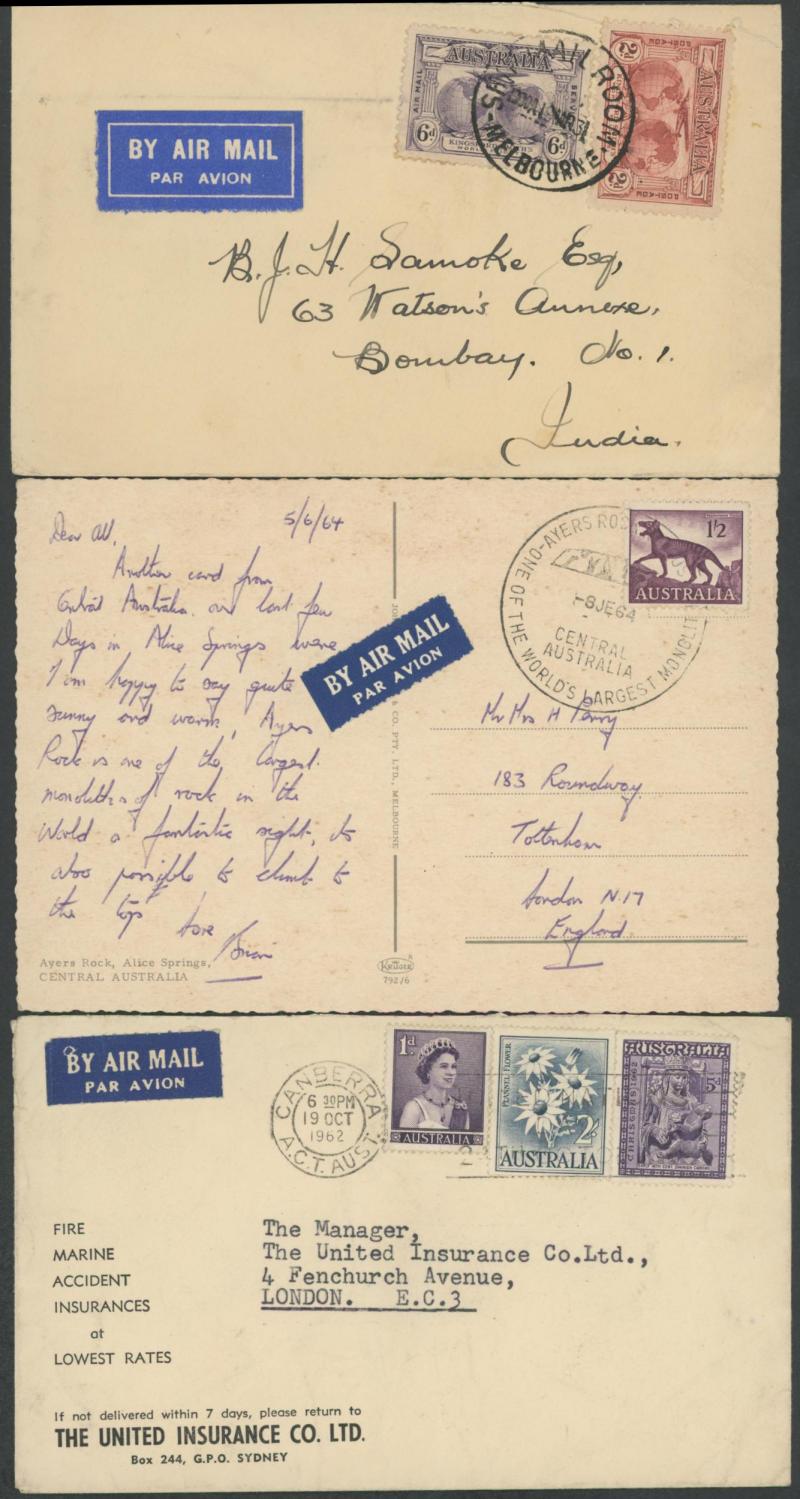 AUSTRALIA
AIR MAIL
SERVICE
6d
6d
2d
POSTAGE
AUSTRALIA
2d
AIR MAIL ROOM
MELBOURNE
BY AIR MAIL
PAR AVION
B.J.H. Samoke Esq,
63 Watson's Annexe,
Bombay. No. 1.
India.
5/6/64
Dear All,
Another card from
Central Australia. our last few
Days in Alice Springs were
I am happy to say quite
sunny and warm, Ayers
Rock is one of the largest
monoliths of rock in the
World a fantastic sight, its
also possible to climb to
the top
love
Brian
Ayers Rock, Alice Springs,
CENTRAL AUSTRALIA
BY AIR MAIL
PAR AVION
& CO. PTY. LTD., MELBOURNE
792/6
1/2
AUSTRALIA
AYERS ROCK
-8JE64
CENTRAL
AUSTRALIA
ONE OF THE WORLD'S LARGEST MONOLITHS
Mr Mrs H Perry
183 Roundway
Tottenham
London N.17
England
BY AIR MAIL
PAR AVION
CANBERRA
6 30PM
19 OCT
1962
A.C.T. AUST.
1d.
AUSTRALIA
FLANNEL FLOWER
2/-
AUSTRALIA
AUSTRALIA
CHRISTMAS 1962
5d
FIRE
MARINE
ACCIDENT
INSURANCES
at
LOWEST RATES
The Manager,
The United Insurance Co.Ltd.,
4 Fenchurch Avenue,
LONDON. E.C.3
If not delivered within 7 days, please return to
THE UNITED INSURANCE CO. LTD.
Box 244, G.P.O. SYDNEY